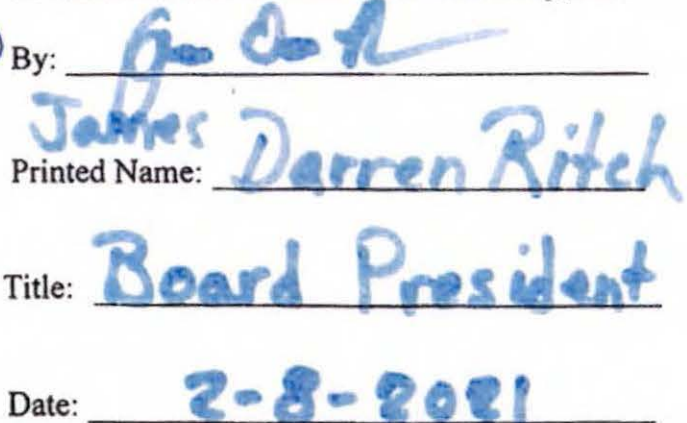 By:
James
Printed Name: Darren Ritch
Title: Board President
Date: 2-8-2021